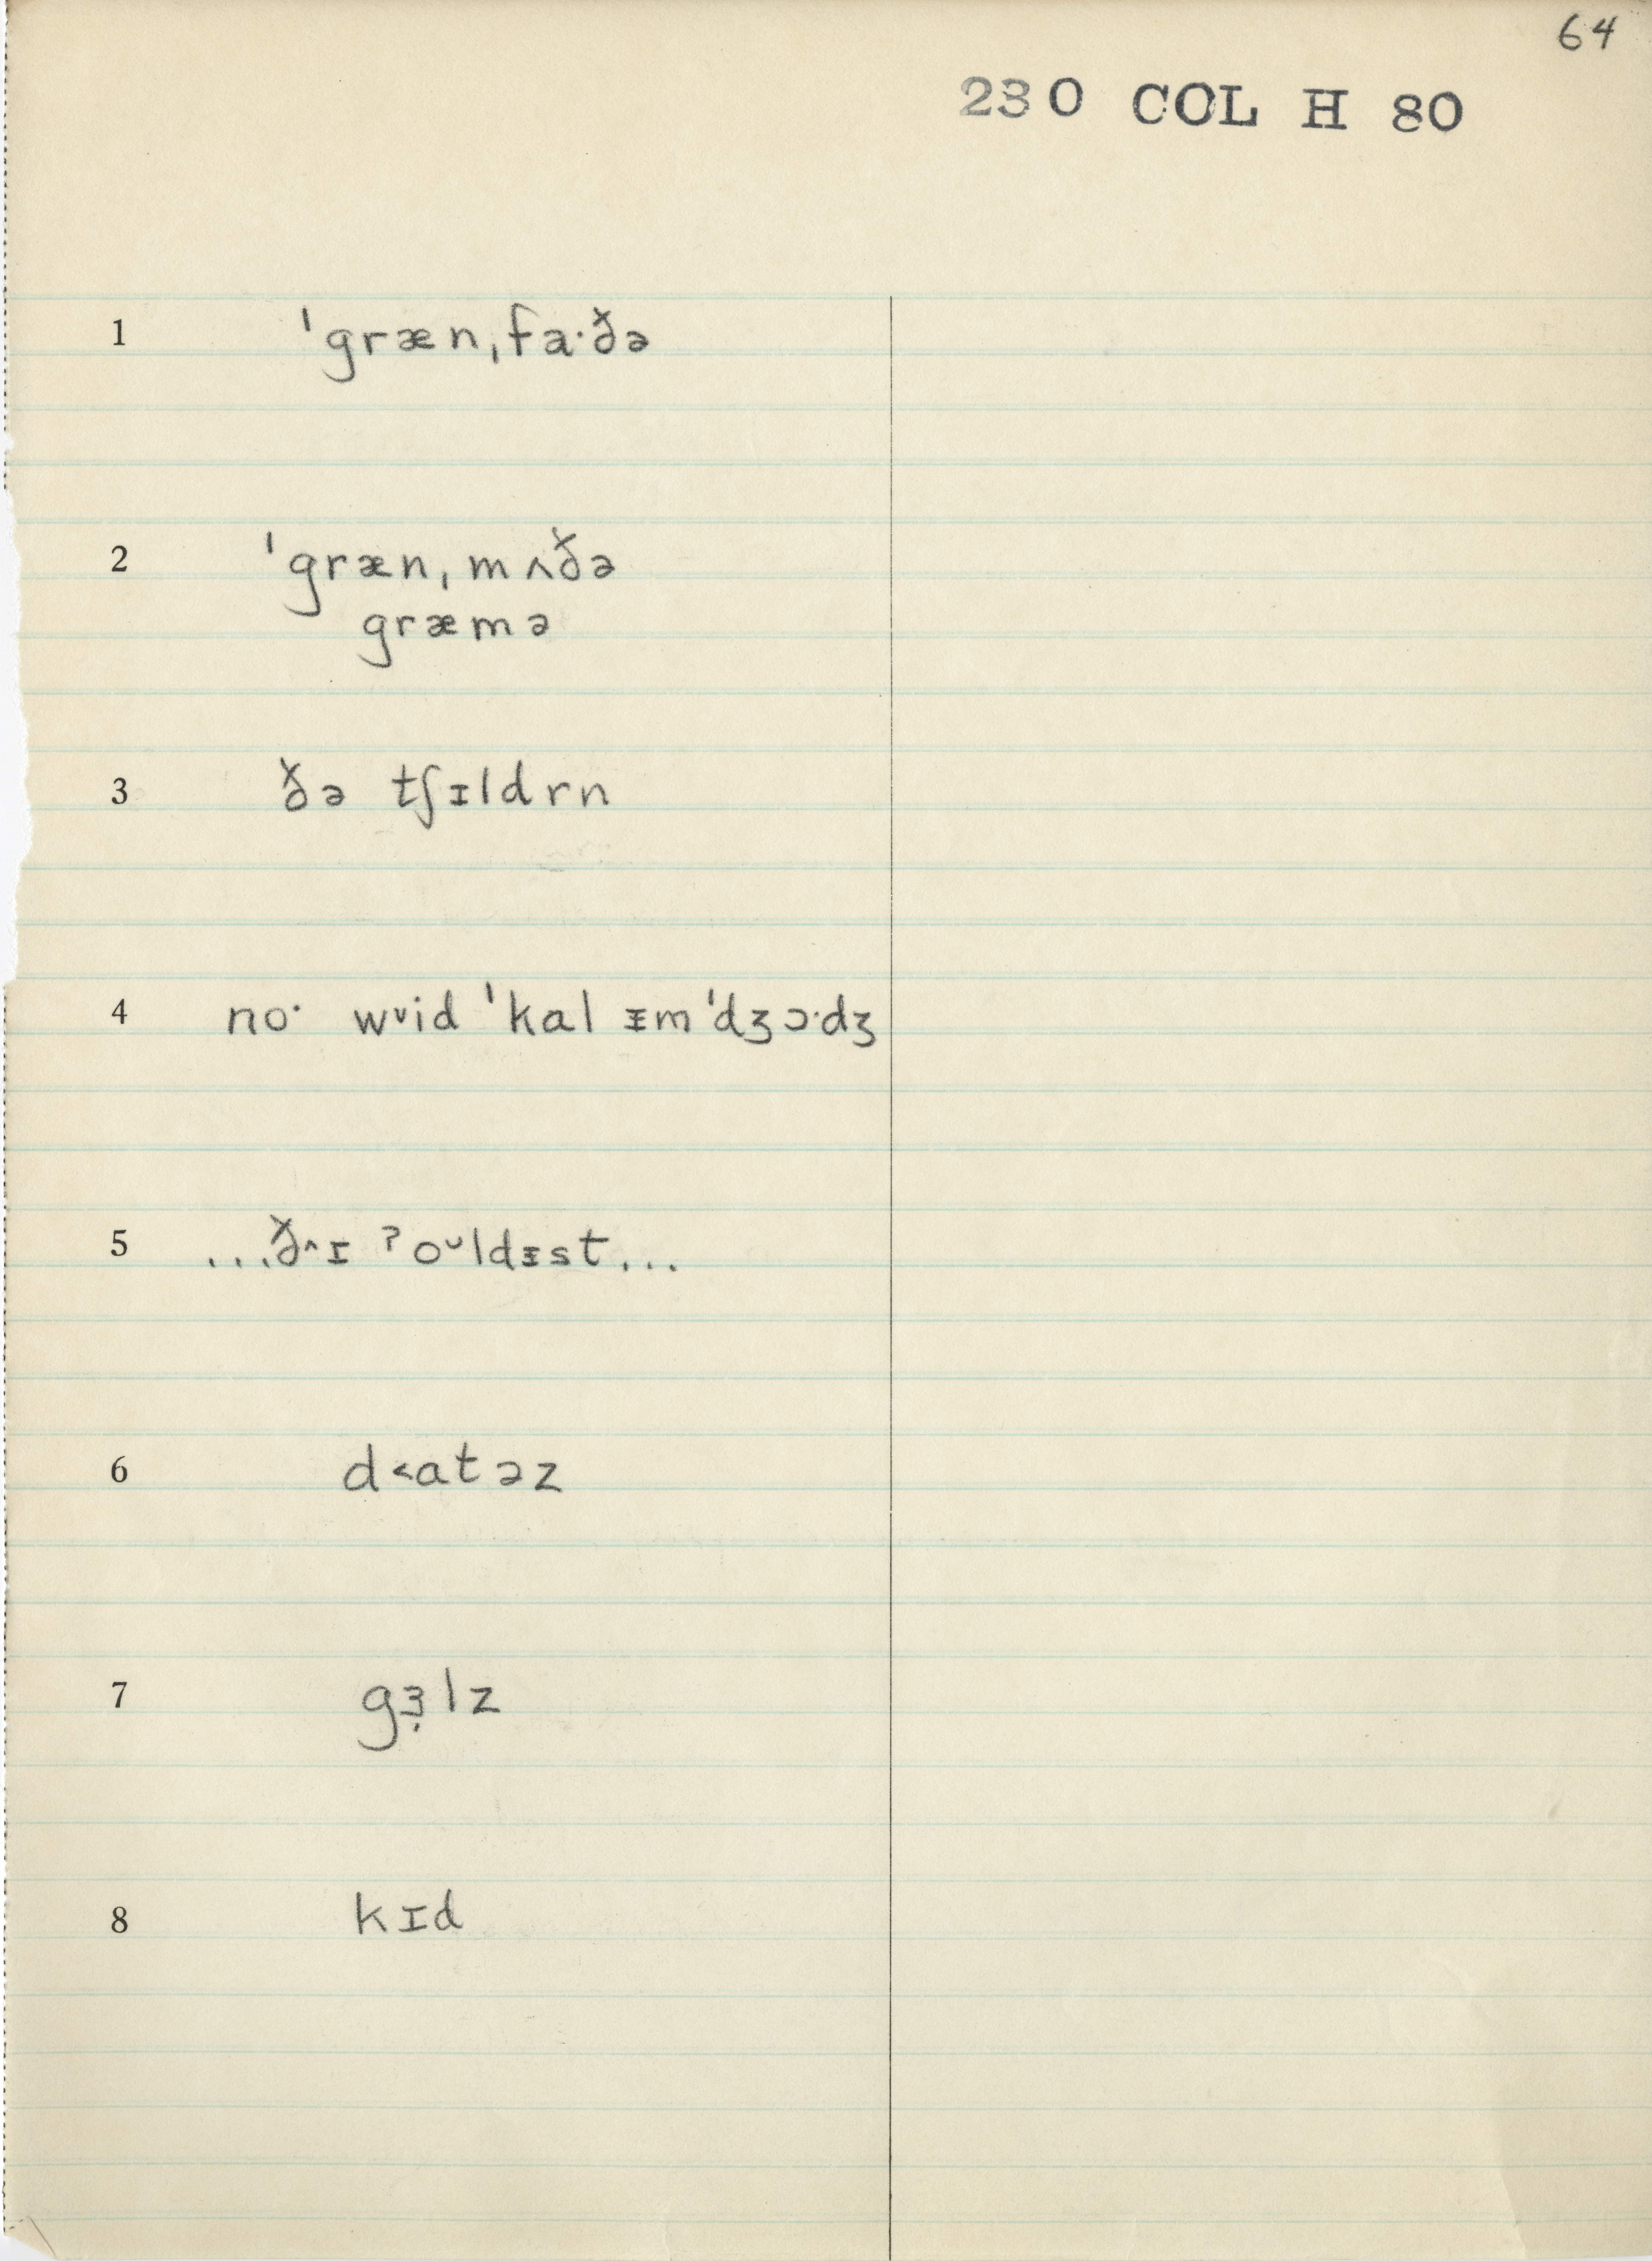 64
230 COL H 80
1 ˈgrænˌfa·ðə
2 ˈgrænˌmʌðə
græmə
3 ðə tʃɪldrn
4 no· wᵛid ˈkal ᵻmˈdʒɔ·dʒ
5 ...ðˆɪ ˀoᵕldᵻst...
6 d˂atəz
7 gɜ̣lz
8 kɪd